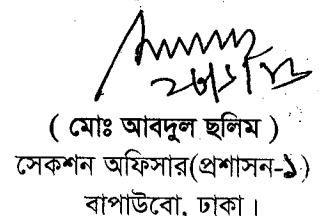 ( মোঃ আবদুল ছলিম )
সেকশন অফিসার(প্রশাসন-১)
বাপাউবো, ঢাকা।